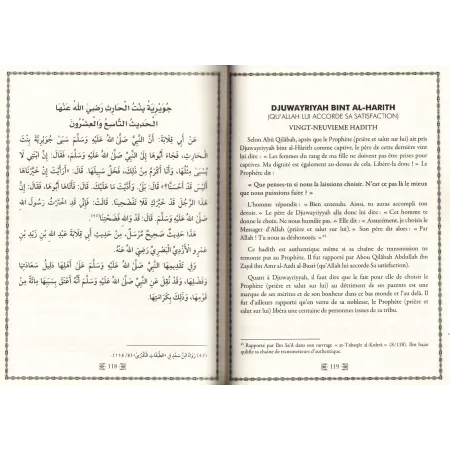 جُوَيْرِيَةُ بِنْتُ الْحَارِثِ رَضِيَ اللهُ عَنْهَا
الْحَدِيثُ التَّاسِعُ وَالْعِشْرُونَ
عَنْ أَبِي قِلَابَةَ: أَنَّ النَّبِيَّ صَلَّى اللهُ عَلَيْهِ وَسَلَّمَ سَبَى جُوَيْرِيَةَ بِنْتَ
الْحَارِثِ، فَجَاءَ أَبُوهَا إِلَى النَّبِيِّ صَلَّى اللهُ عَلَيْهِ وَسَلَّمَ، فَقَالَ: إِنَّ ابْنَتِي لَا
يُسْبَى مِثْلُهَا، وَأَنَا أَكْرَمُ مِنْ ذَلِكَ، فَخَلِّ سَبِيلَهَا، فَقَالَ: أَرَأَيْتَ إِنْ خَيَّرْنَاهَا
أَلَيْسَ قَدْ أَحْسَنَّا؟» قَالَ: بَلَى، وَأَدَّيْتَ مَا عَلَيْكَ، قَالَ: فَأَتَاهَا أَبُوهَا، فَقَالَ: إِنَّ
هَذَا الرَّجُلَ قَدْ خَيَّرَكِ فَلَا تَفْضَحِينَا، فَقَالَتْ: فَإِنِّي قَدِ اخْتَرْتُ رَسُولَ اللهِ
صَلَّى اللهُ عَلَيْهِ وَسَلَّمَ، قَالَ: قَدْ وَاللهِ فَضَحْتِنَا
هَذَا حَدِيثٌ صَحِيحٌ مُرْسَلٌ، مِنْ حَدِيثِ أَبِي قِلَابَةَ عَبْدِ اللهِ بْنِ زَيْدِ بْنِ
عَمْرٍو الْأَزْدِيِّ الْبَصْرِيِّ رَضِيَ اللهُ عَنْهُ.
وَفِي تَقْدِيمِهَا النَّبِيَّ صَلَّى اللهُ عَلَيْهِ وَسَلَّمَ عَلَى أَهْلِهَا دَلِيلُ سَعَادَتِهَا
وَفَضْلِهَا، وَقَدْ نُقِلَ عَنِ النَّبِيِّ صَلَّى اللهُ عَلَيْهِ وَسَلَّمَ أَنَّهُ أَعْتَقَ بِسَبَبِهَا مِائَةً مِنْ
قَوْمِهَا، وَذَلِكَ بِكَرَامَتِهَا.
118
DJUWAYRIYAH BINT AL-HARITH
(QU'ALLAH LUI ACCORDE SA SATISFACTION)
VINGT-NEUVIEME HADITH
Selon Abû Qilâbah, après que le Prophète (prière et salut sur lui) ait pris
Djuwayriyah bint al-Hârith comme captive, le père de cette dernière vint
lui dire : « Les femmes du rang de ma fille ne doivent pas être prises pour
captives. De plus, mon rang est au-dessus de cela. Libère-la donc ! ». Le
Prophète dit :
« Que penses-tu si nous la laissions choisir. N'est ce pas là le mieux
que nous puissions faire ? »
L'homme répondit : « Bien entendu. Ainsi, tu auras accompli ton
devoir. » Le père de Djuwayriyah alla donc lui dire : « Cet homme te
donne le choix. Ne nous humilie pas. » Elle dit : « Assurément, je choisis le
Messager d'Allah (prière et salut sur lui). » Son père dit alors : « Par
Allah ! Tu nous as déshonorés. »
Ce hadith est authentique même si sa chaîne de transmission ne
remonte pas au Prophète. Il fut rapporté par Abou Qilâbah Abdullah ibn
Zayd ibn Amr al-Azdi al-Basri (qu'Allah lui accorde Sa satisfaction).
Quant à Djuwayriyah, il est clair que le fait pour elle de choisir le
Prophète (prière et salut sur lui) au détriment de ses parents est une
marque de ses mérites et de son bonheur dans ce bas monde et l'au delà. Il
fut d'ailleurs rapporté qu'en vertu de sa noblesse, le Prophète (prière et
salut sur lui) libéra une centaine de personnes issues de sa tribu.
Rapporté par Ibn Sa'd dans son ouvrage « at-Tabaqât al-Kubrâ » (8/118). Ibn hajar
qualifie sa chaîne de transmetteurs d'authentique.
119